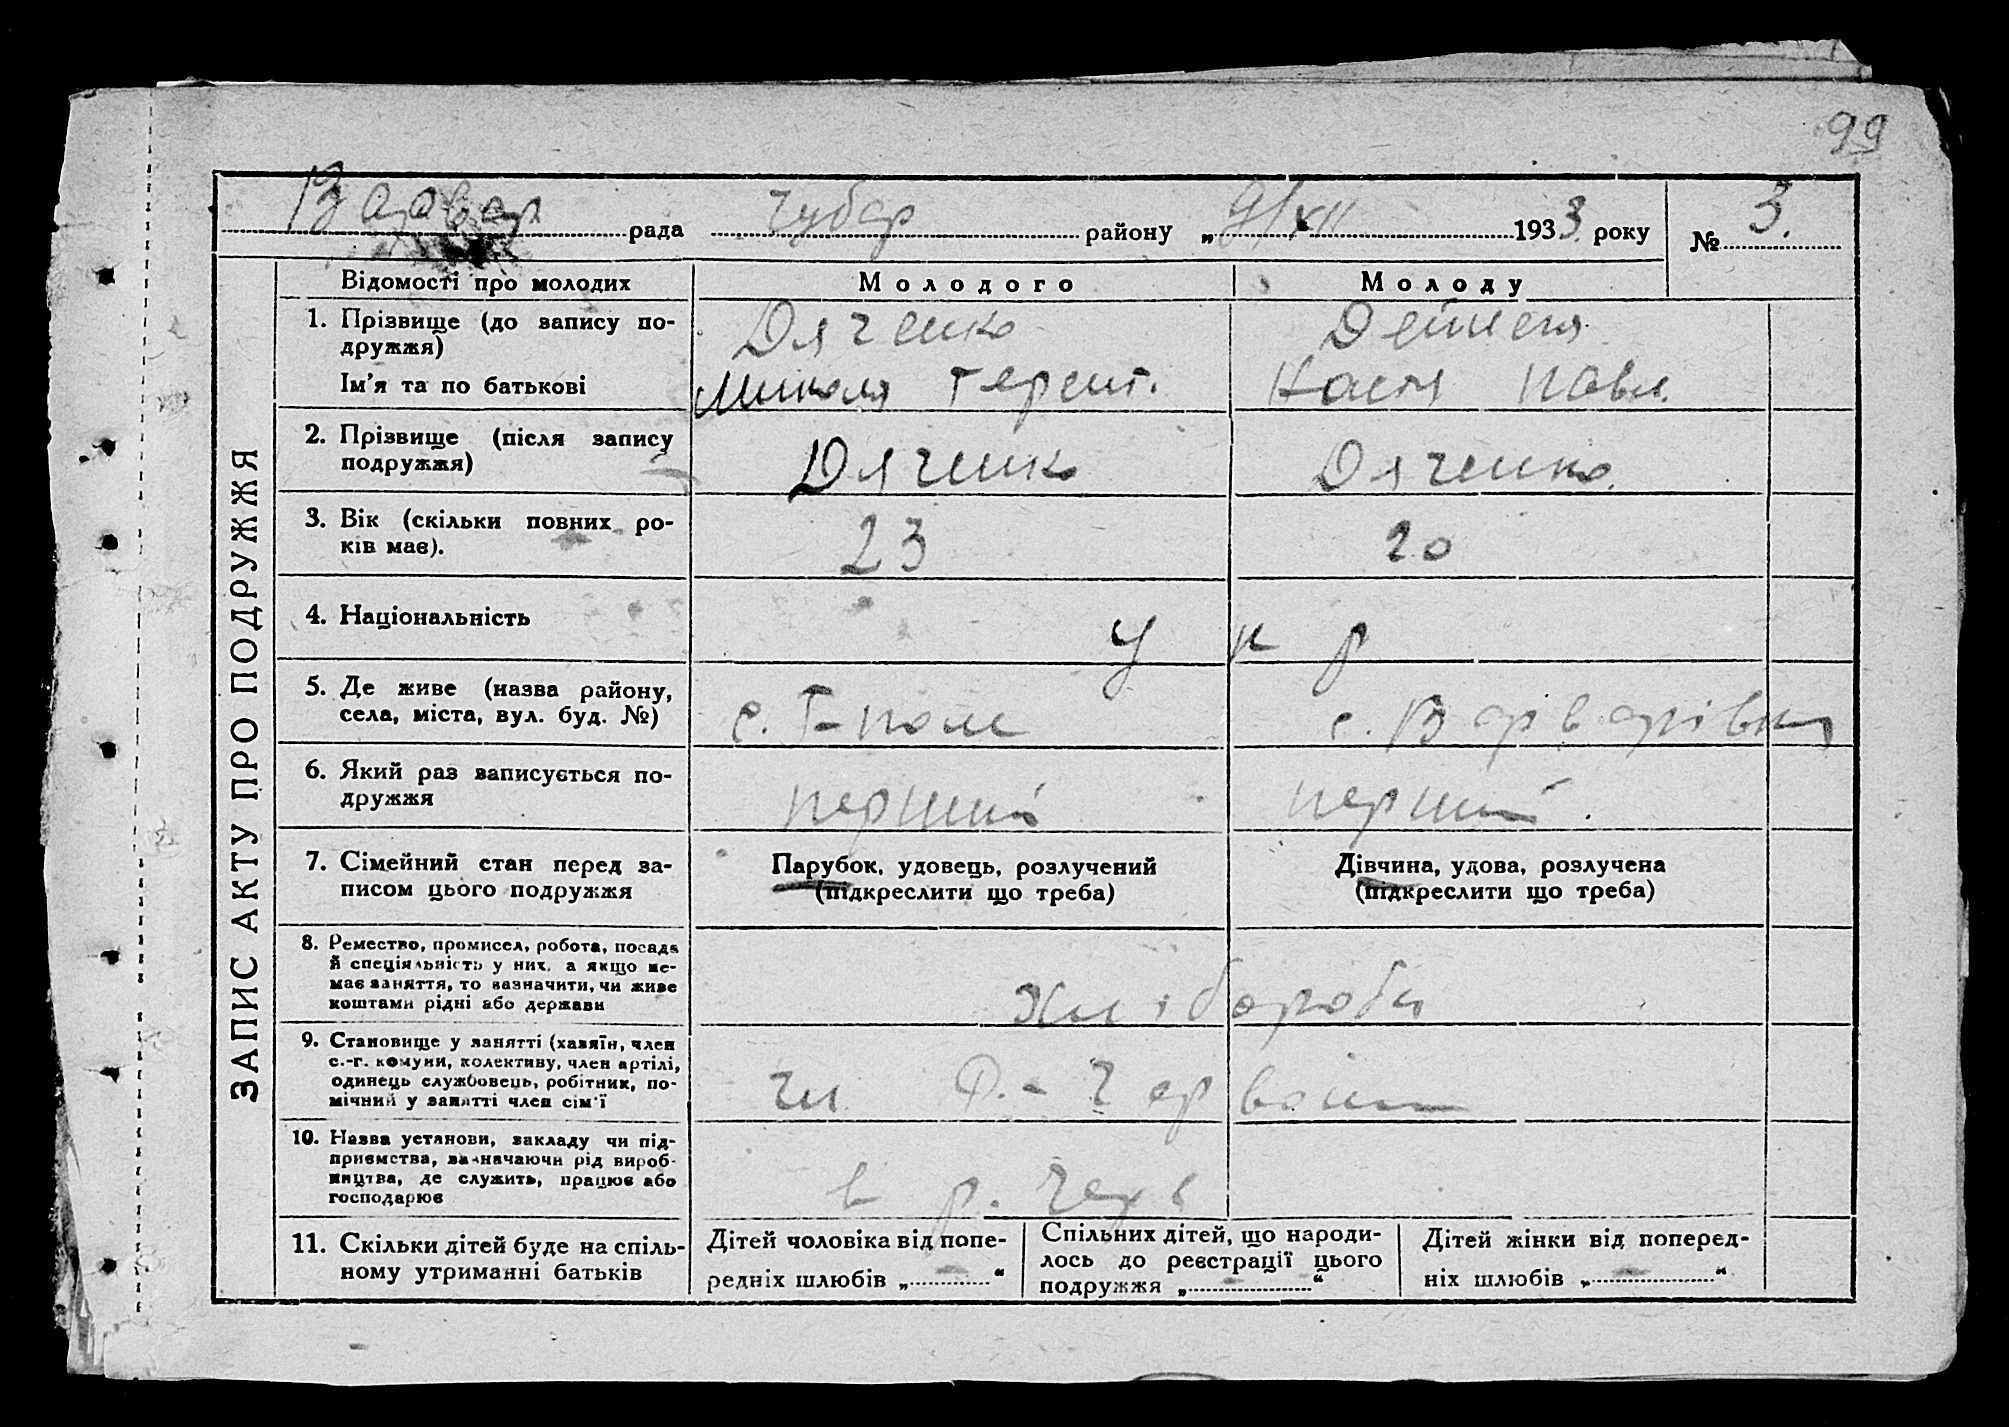 99
рада Чубар району „9/XII 1933 року № 3.
Відомості про молодих Молодого Молоду
1. Прізвище (до запису по-
дружжя)
Дяченко
Ім'я та по батькові
Микола Терент. Настя Павл.
2. Прізвище (після запису
подружжя)
Дяченко Дяченко.
3. Вік (скільки повних ро-
ків має).
23 20
4. Національність
укр
5. Де живе (назва району,
села, міста, вул. буд. №)
с. Г-поле с. Варварівка
6. Який раз записується по-
дружжя
перший перший.
7. Сімейний стан перед за-
писом цього подружжя
Парубок, удовець, розлучений
(підкреслити що треба)
Дівчина, удова, розлучена
(підкреслити що треба)
8. Ремество, промисел, робота, посада
й спеціяльність у них, а якщо не-
має заняття, то зазначити, чи живе
коштами рідні або держави
Хлібороби
9. Становище у занятті (хазяїн, член
с.-г. комуни, колективу, член артілі,
одинець службовець, робітник, по-
мічний у занятті член сім'ї
10. Назва установи, закладу чи під-
приємства, зазначаючи рід вироб-
ництва, де служить, працює або
господарює
в р.
11. Скільки дітей буде на спіль-
ному утриманні батьків
Дітей чоловіка від попе-
редніх шлюбів „ - “
Спільних дітей, що народи-
лось до реєстрації цього
подружжя „ - “
Дітей жінки від поперед-
ніх шлюбів „ - “
ЗАПИС АКТУ ПРО ПОДРУЖЖЯ